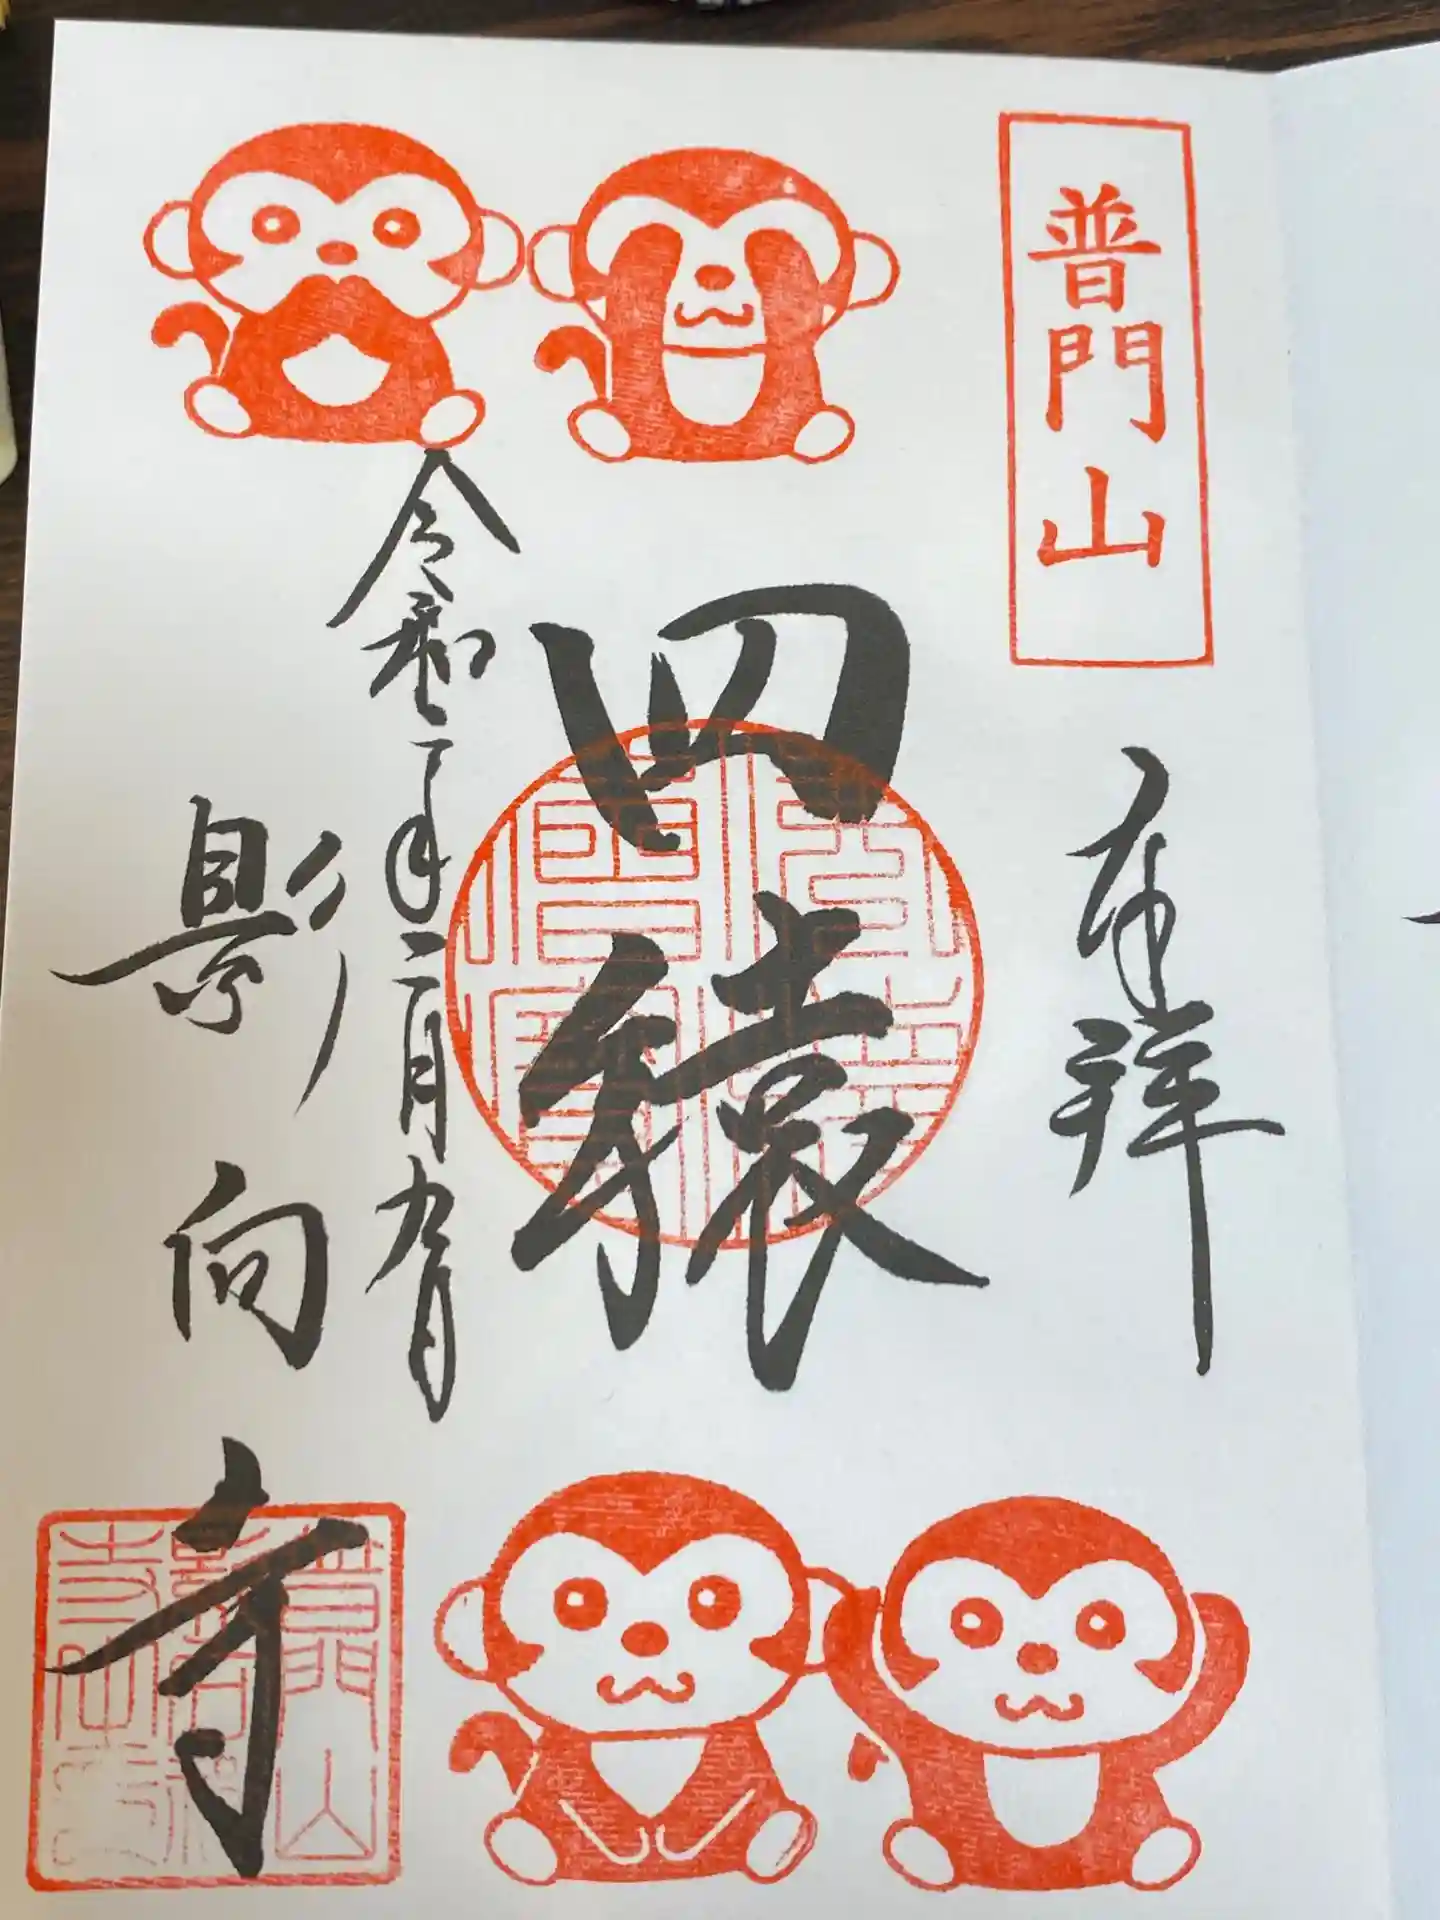 普門山
奉拝
四猿
令和二年二月九日
影向寺
普門山